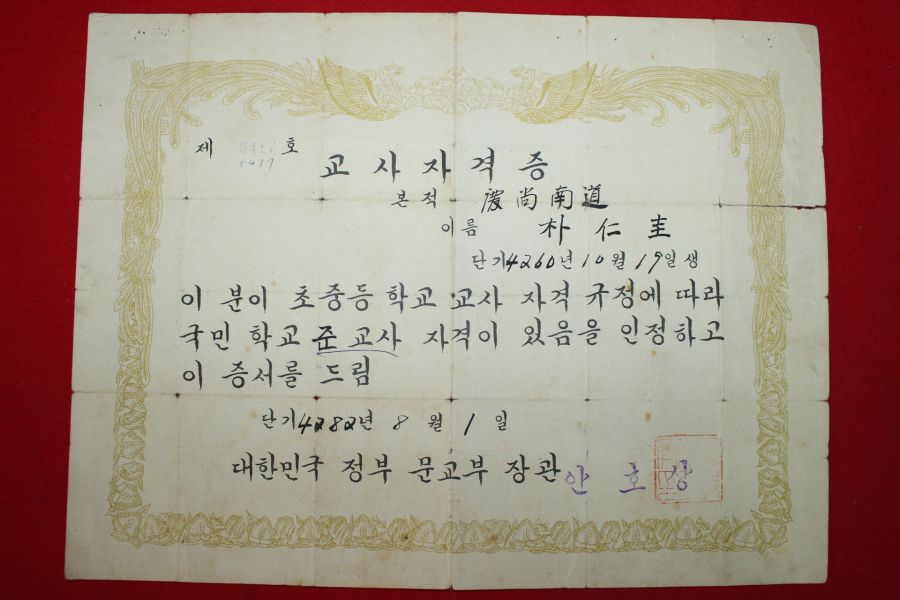 제 호
5417
교사자격증
본적 慶尚南道
이름 朴仁圭
단기4260년 10월 19일생
이 분이 초중등 학교 교사 자격 규정에 따라
국민 학교 준교사 자격이 있음을 인정하고
이 증서를 드림
단기4282년 8월 1일
대한민국 정부 문교부 장관 안호상